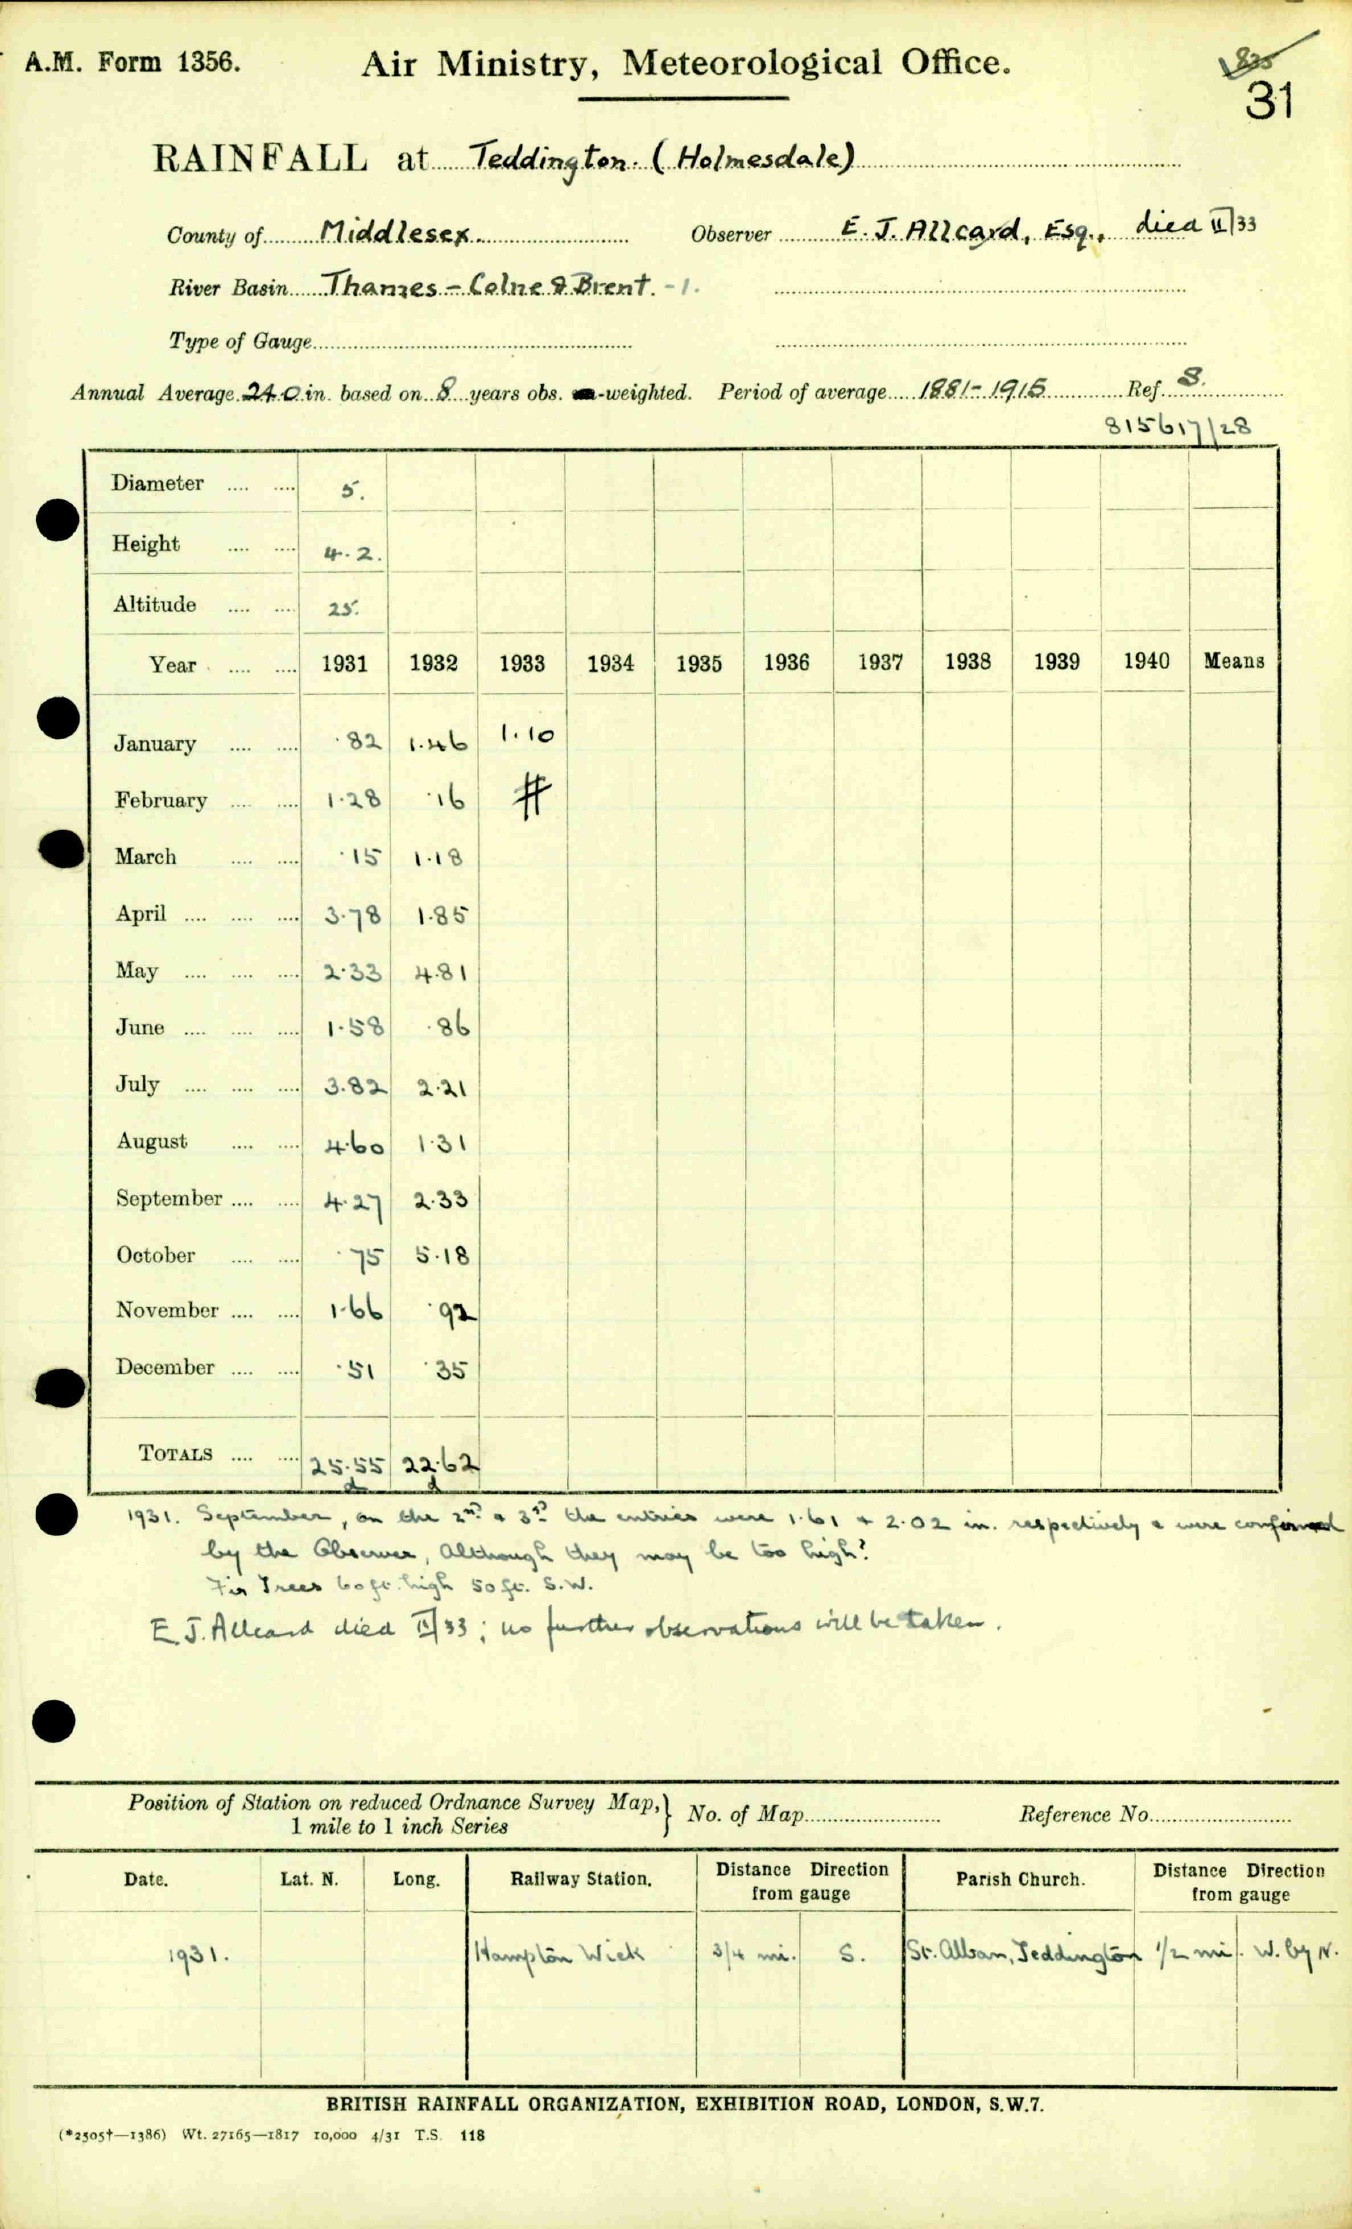 A.M. Form 1356.
Air Ministry, Meteorological Office.
31
RAINFALL at Teddington. (Holmesdale)
County of Middlesex. Observer E. J. Allcard, Esq., died II/33
River Basin Thames - Colne & Brent. - 1.
Type of Gauge
Annual Average 24.0 in. based on 8 years obs. -weighted. Period of average 1881-1915 Ref. S.
815617/28
Diameter 5.
Height 4.2.
Altitude 25.
Year 1931 1932 1933 1934 1935 1936 1937 1938 1939 1940 Means
January .82 1.46 1.10
February 1.28 .16 #
March .15 1.18
April 3.78 1.85
May 2.33 4.81
June 1.58 .86
July 3.82 2.21
August 4.60 1.31
September 4.27 2.33
October .75 5.18
November 1.66 .92
December .51 .35
TOTALS 25.55 22.62
d d
1931. September, on the 2nd & 3rd the entries were 1.61 & 2.02 in. respectively & were confirmed
by the Observer, although they may be too high?
Fir Trees 60 ft. high 50 ft. S.W.
E. J. Allcard died II/33; no further observations will be taken.
Position of Station on reduced Ordnance Survey Map, } No. of Map Reference No.
1 mile to 1 inch Series
Date. Lat. N. Long. Railway Station. Distance Direction from gauge Parish Church. Distance Direction from gauge
1931. Hampton Wick 3/4 mi. S. St. Alban, Teddington 1/2 mi. W. by N.
BRITISH RAINFALL ORGANIZATION, EXHIBITION ROAD, LONDON, S.W.7.
(*2505†—1386) Wt. 27165—1817 10,000 4/31 T.S. 118